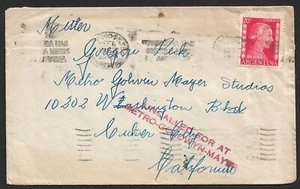 Mister
Gregory Peck
Metro Golwin Mayer Studios
10302 W Washington Blvd
Culver City
California
CALLED FOR AT
METRO-GOLDWYN-MAYER
20
ARGENTINA